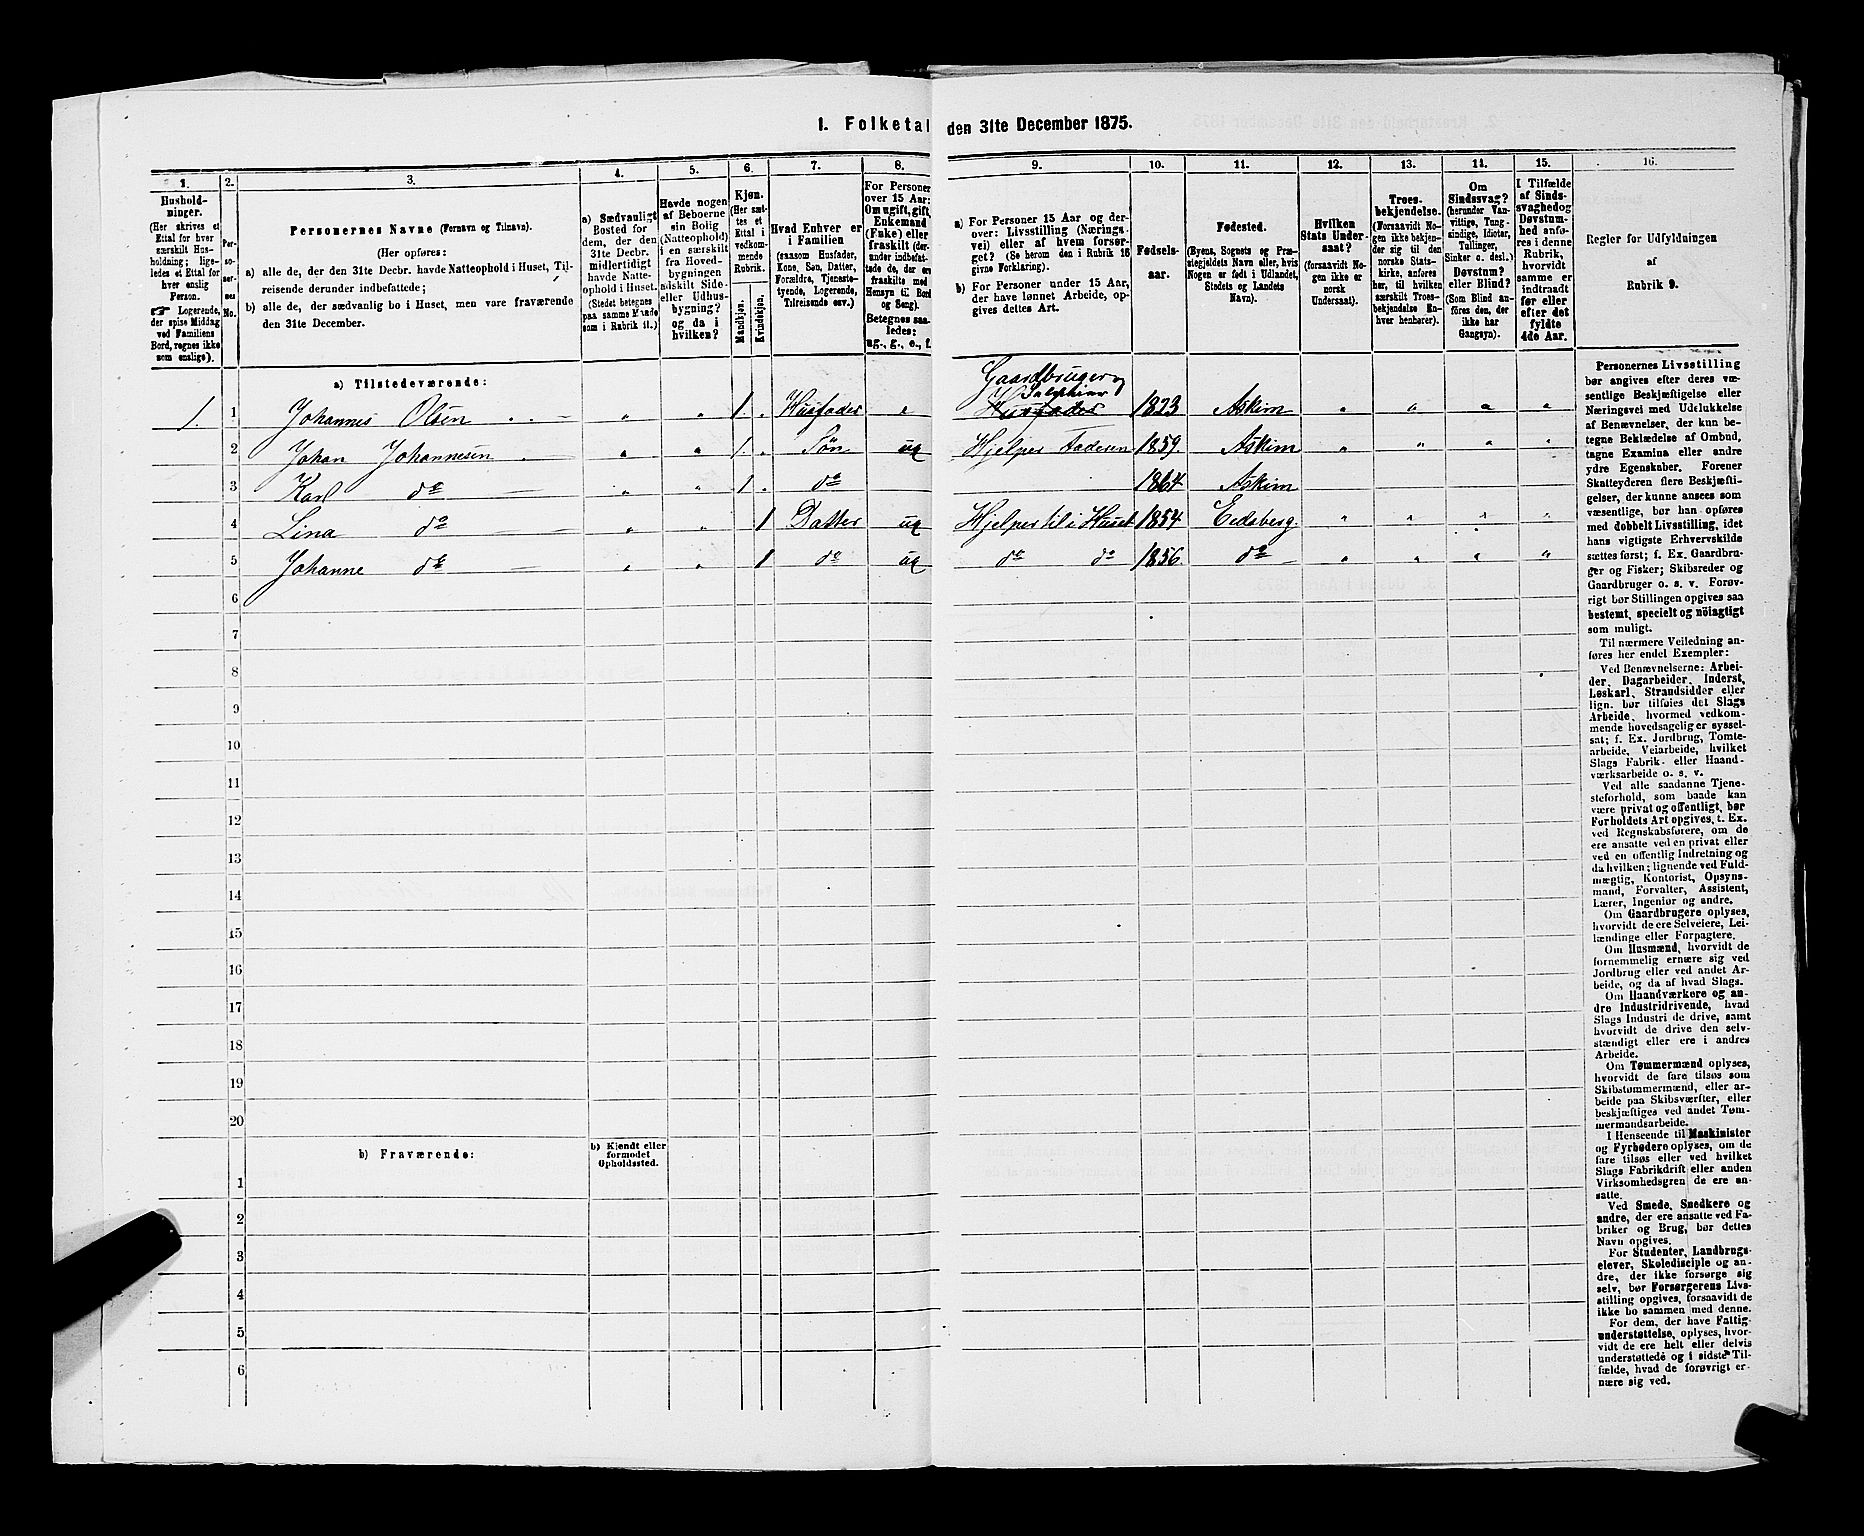 1. Folketal den 31te December 1875.
1.
Hushold-
ninger.
(Her skrives et
Ettal for hver
særskilt Hus-
holdning; lige-
ledes et Ettal for
hver enslig
Person.
☛ Logerende,
der spise Middag
ved Familiens
Bord, regnes ikke
som enslige).
2.
Per-
so-
ner-
nes
No.
3.
Personernes Navne (Fornavn og Tilnavn).
(Her opføres:
a) alle de, der den 31te Decbr. havde Natteophold i Huset, Til-
reisende derunder indbefattede;
b) alle de, der sædvanlig bo i Huset, men vare fraværende
den 31te December.
4.
a) Sædvanligt
Bosted for
dem, der den
31te Decbr.
midlertidigt
havde Natte-
ophold i Huset.
(Stedet betegnes
paa samme Maade
som i Rubrik 11.)
5.
Havde nogen
af Beboerne
sin Bolig
(Natteophold)
i en særskilt
fra Hoved-
bygningen
adskilt Side-
eller Udhus-
bygning?
og da i
hvilken?
6.
Kjøn.
(Her sæt-
tes et
Ettal i
vedkom-
mende
Rubrik.
Mandkjøn.
Kvindekjøn.
7.
Hvad Enhver er
i Familien
(saasom Husfader,
Kone, Søn, Datter,
Forældre, Tjeneste-
tyende, Logerende,
Tilreisende osv.)
8.
For Personer
over 15 Aar:
Om ugift, gift,
Enkemand
(Enke) eller
fraskilt (der-
under indbefat-
tede de, der ere
fraskilte med
Hensyn til Bord
og Seng).
Betegnes saa-
ledes:
ug., g., e., f.
9.
a) For Personer 15 Aar og der-
over: Livsstilling (Nærings-
vei) eller af hvem forsør-
get? (Se herom den i Rubrik 16
givne Forklaring).
b) For Personer under 15 Aar,
der have lønnet Arbeide, op-
gives dettes Art.
10.
Fødsels-
aar.
11.
Fødested.
(Byens, Sognets og Præ-
stegjeldets Navn eller, hvis
Nogen er født i Udlandet,
Stedets og Landets
Navn).
12.
Hvilken
Stats Under-
saat?
(forsaavidt No-
gen ikke er
norsk
Undersaat).
13.
Troes-
bekjendelse.
(Forsaavidt No-
gen ikke bekjen-
der sig til den
norske Stats-
kirke, anføres
her, til hvilken
særskilt Troes-
bekjendelse En-
hver henhører).
14.
Om
Sindssvag?
(herunder Van-
vittige, Tung-
sindige, Idioter,
Tullinger,
Sinker o. desl.)
Døvstum?
eller Blind?
(Som Blind an-
føres den, der
ikke har
Gangsyn).
15.
I Tilfælde
af Sinds-
svaghed og
Døvstum-
hed anfø-
res i denne
Rubrik,
hvorvidt
samme er
indtraadt
før eller
efter det
fyldte
4de Aar.
16.
Regler for Udfyldningen
af
Rubrik 9.
a) Tilstedeværende:
1. 1 Johannes Olsen " " 1. Husfader e Gaardbruger og Selveier Husfader 1823 Askim " " " "
2 Johan Johannesen " " 1. Søn ug Hjelper Faderen 1859. Askim " " " "
3 Karl do " " 1 do 1864 Askim
4 Lina do " " 1 Datter ug Hjelper til i Huset 1854 Eidsberg. " " " "
5 Johanne do " " 1 do ug do do 1856. do " " " "
6
7
8
9
10
11
12
13
14
15
16
17
18
19
20
b) Fraværende:
b) Kjendt eller
formodet
Opholdssted.
1
2
3
4
5
6
Personernes Livsstilling
bør angives efter deres væ-
sentlige Beskjæftigelse eller
Næringsvei med Udelukkelse
af Benævnelser, der kun be-
tegne Beklædelse af Ombud,
tagne Examina eller andre
ydre Egenskaber. Forener
Skatteyderen flere Beskjæfti-
gelser, der kunne ansees som
væsentlige, bør han opføres
med dobbelt Livsstilling, idet
hans vigtigste Erhvervskilde
sættes først; f. Ex. Gaardbru-
ger og Fisker; Skibsreder og
Gaardbruger o. s. v. Forøv-
rigt bør Stillingen opgives saa
bestemt, specielt og nöiagtigt
som muligt.
Til nærmere Veiledning an-
føres her endel Exempler:
Ved Benævnelserne: Arbei-
der, Dagarbeider, Inderst,
Løskarl, Strandsidder eller
lign. bør tilføies det Slags
Arbeide, hvormed vedkom-
mende hovedsagelig er syssel-
sat; f. Ex. Jordbrug, Tomte-
arbeide, Veiarbeide, hvilket
Slags Fabrik- eller Haand-
værksarbeide o. s. v.
Ved alle saadanne Tjene-
steforhold, som baade kan
være privat og offentligt, bør
Forholdets Art opgives, t. Ex.
ved Regnskabsførere, om de
ere ansatte ved en privat eller
ved en offentlig Indretning og
da hvilken; lignende ved Fuld-
mægtig, Kontorist, Opsyns-
mand, Forvalter, Assistent,
Lærer, Ingeniør og andre.
Om Gaardbrugere oplyses,
hvorvidt de ere Selveiere, Lei-
lændinge eller Forpagtere.
Om Husmænd, hvorvidt de
fornemmelig ernære sig ved
Jordbrug eller ved andet Ar-
beide, og da af hvad Slags.
Om Haandværkere og an-
dre Industridrivende, hvad
Slags Industri de drive, samt
hvorvidt de drive den selv-
stændigt eller ere i andres
Arbeide.
Om Tømmermænd oplyses,
hvorvidt de fare tilsøs som
Skibstømmermænd, eller ar-
beide paa Skibsværfter, eller
beskjæftiges ved andet Tøm-
mermandsarbeide.
I Henseende til Maskinister
og Fyrbødere oplyses, om de
fare tilsøs eller ved hvilket
Slags Fabrikdrift eller anden
Virksomhedsgren de ere an-
satte.
Ved Smede, Snedkere og
andre, der ere ansatte ved Fa-
briker og Brug, bør dettes
Navn opgives.
For Studenter, Landbrugs-
elever, Skoledisciple og an-
dre, der ikke forsørge sig
selv, bør Forsørgerens Livs-
stilling opgives, forsaavidt de
ikke bo sammen med denne.
For dem, der have Fattig-
understøttelse, oplyses, hvor-
vidt de ere helt eller delvis
understøttede og i sidste Til-
fælde, hvad de forøvrigt er-
nære sig ved.